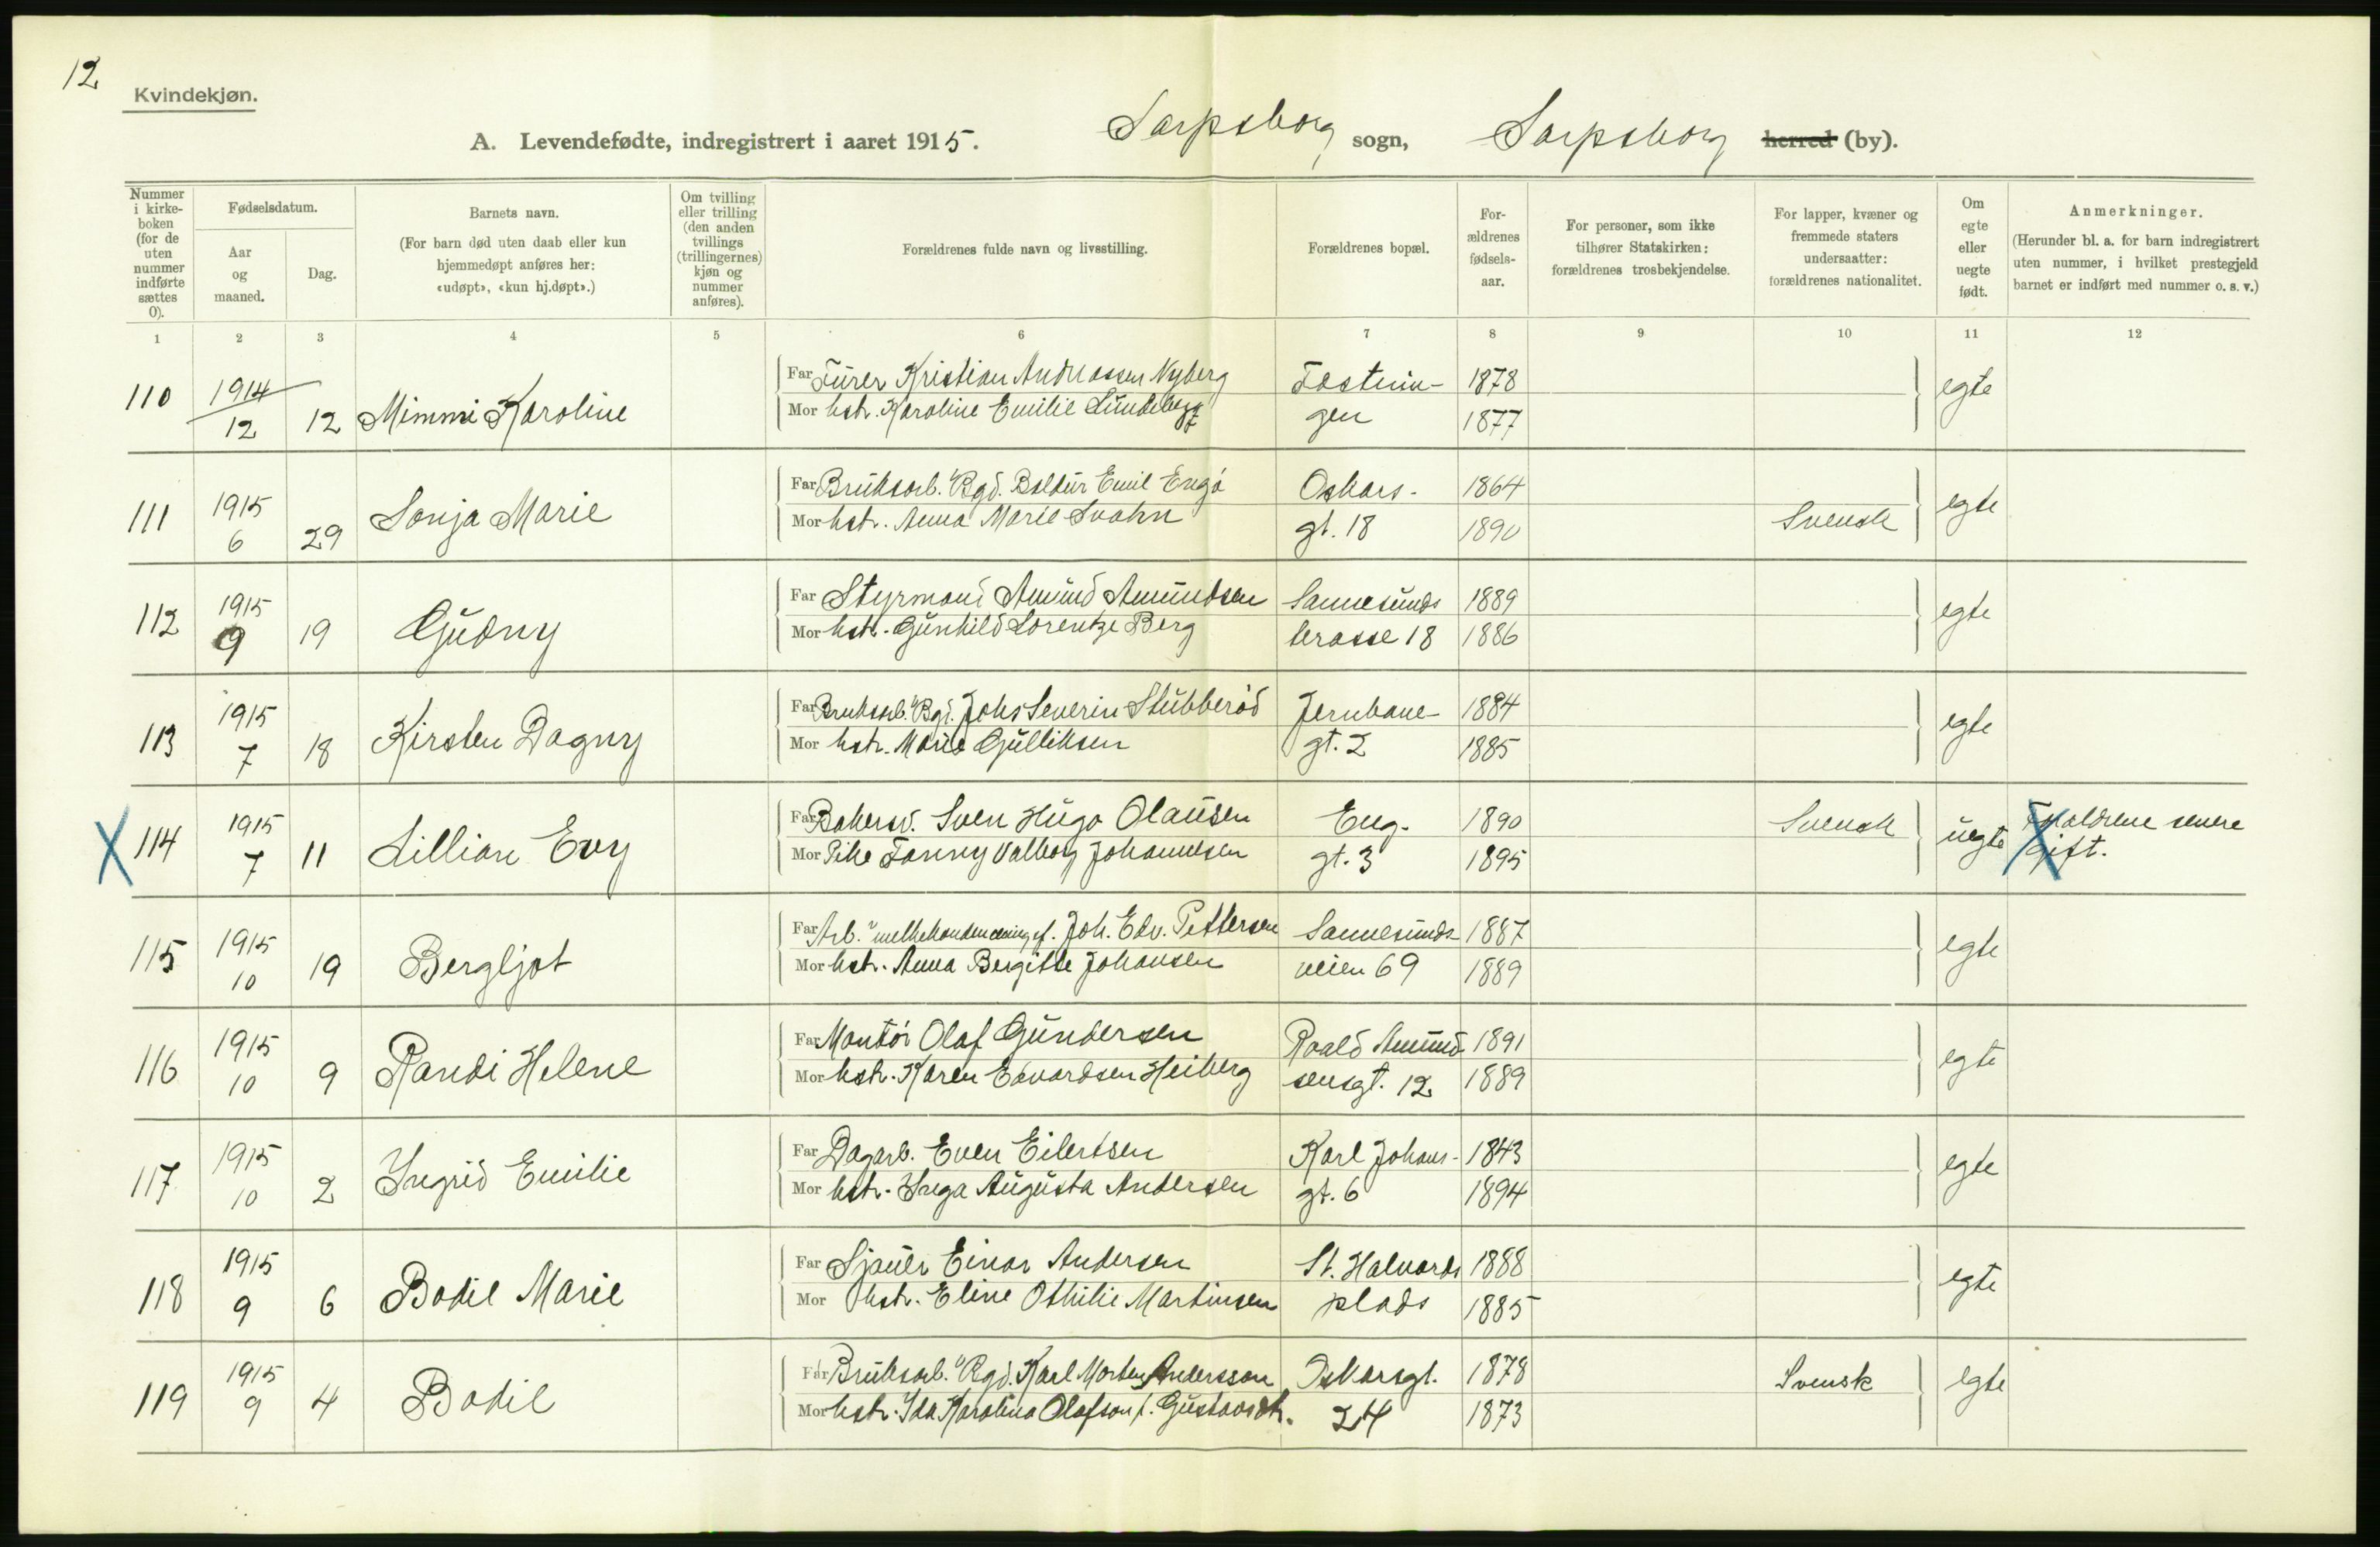 12
Kvindekjøn.
A. Levendefødte, indregistrert i aaret 1915. Sarpsborg sogn, Sarpsborg herred (by).
Nummer i kirke-boken (for de uten nummer indførte sættes 0).
Fødselsdatum.
Aar og maaned.
Dag.
Barnets navn.
(For barn død uten daab eller kun hjemmedøpt anføres her: «udøpt», «kun hj.døpt».)
Om tvilling eller trilling (den anden tvillings (trillingernes) kjøn og nummer anføres).
Forældrenes fulde navn og livsstilling.
Forældrenes bopæl.
For-ældrenes fødsels-aar.
For personer, som ikke tilhører Statskirken: forældrenes trosbekjendelse.
For lapper, kvæner og fremmede staters undersaatter: forældrenes nationalitet.
Om egte eller uegte født.
Anmerkninger.
(Herunder bl. a. for barn indregistrert uten nummer, i hvilket prestegjeld barnet er indført med nummer o. s. v.)
1 2 3 4 5 6 7 8 9 10 11 12
110 1914 12 12 Mimmi Karoline
Far Furer Kristian Andreassen Nyberg 1878 egte
Mor hstr. Karoline Emilie Lundeberg gen 1877
111 1915 6 29 Sonja Marie
Far Bruksarb. Bgd. Baltzur Emil Engø Oskars- 1864 egte
Mor hstr. Anna Marie Svahn gt. 18 1890 Svensk
112 1915 9 19 Gudny
Far Styrmand Amund Amundsen Sannesunds 1889 egte
Mor hstr. Gunhild Lorentze Berg terasse 18 1886
113 1915 7 18 Kirsten Dagny
Far Bruksarb. Bgd. Johs Severin Stubberød Jernbane- 1884 egte
Mor hstr. Marie Gulliksen gt. 2 1885
X 114 1915 7 11 Lillian Evy
Far Bakersv. Sven Hugo Olausen Eng- 1890 Svensk uegte Forældrene senere
Mor Pike Fanny Valborg Johannesen gt. 3 1895 gift.
115 1915 10 19 Bergljot
Far Arb. Joh. Edv. Pettersen Sannesunds- 1887 egte
Mor hstr. Anna Bergitte Johansen veien 69 1889
116 1915 10 9 Randi Helene
Far Montør Olaf Gundersen Roald Amund- 1891 egte
Mor hstr. Karen Edvardsen Heiberg sensgt. 12 1889
117 1915 10 2 Ingrid Emilie
Far Dagarb. Even Eilertsen Karl Johans- 1843 egte
Mor hstr. Inga Augusta Andersen gt. 6 1894
118 1915 9 6 Bodil Marie
Far Sjauer Einar Andersen St. Halvards 1888 egte
Mor hstr. Eline Othilie Martinsen plads 1885
119 1915 9 4 Bodil
Far Bruksarb. Bgd. Karl Morten Andersson Oskarsgt. 1878 Svensk egte
Mor hstr. Ida Karolina Olafson f. Gustavsdtr. 24 1873